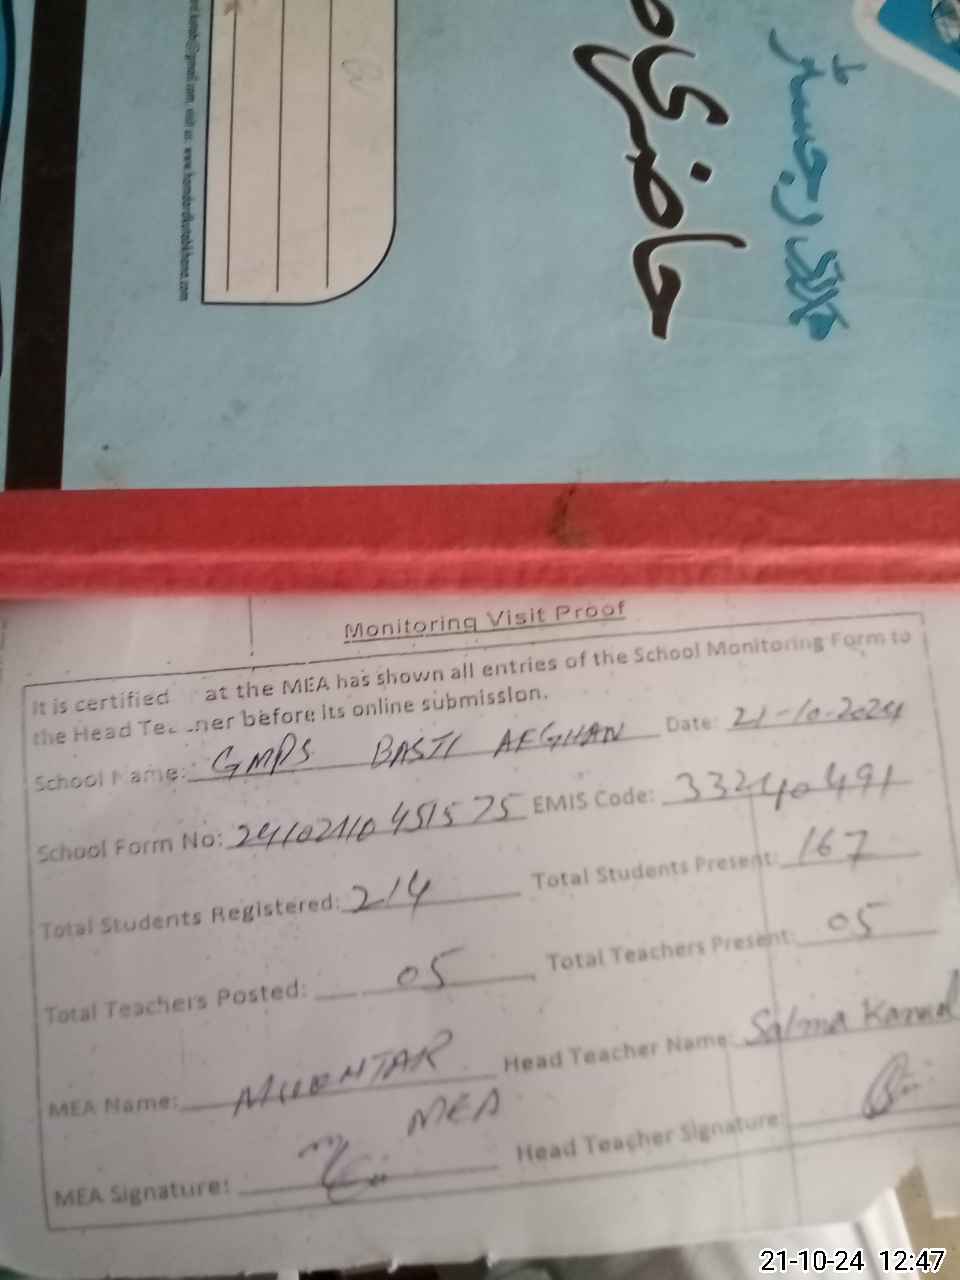 حاضری
طلباء رجسٹر
visit us: www.hamdardkutabkhana.com
Monitoring Visit Proof
It is certified at the MEA has shown all entries of the School Monitoring Form to
the Head Te ner before its online submission.
School Name: GMPS BASTI AFGHAN Date: 21-10-2024
School Form No: 24102110451575 EMIS Code: 33240491
Total Students Registered: 214 Total Students Present: 167
Total Teachers Posted: 05 Total Teachers Present: 05
MEA Name: Head Teacher Name: Salma
MEA
MEA Signature: Head Teacher Signature:
21-10-24 12:47